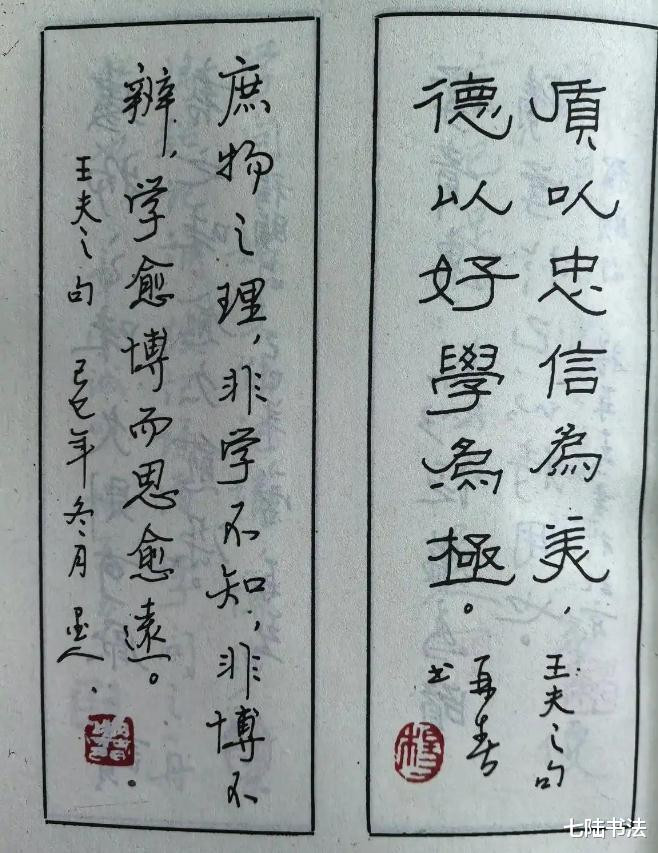 質以忠信為美，
德以好學為極。
王夫之句
再春
书
庶物之理，非学不知，非博不
辨，学愈博而思愈遠。
王夫之句 己巳年冬月 墨人．
七陆书法